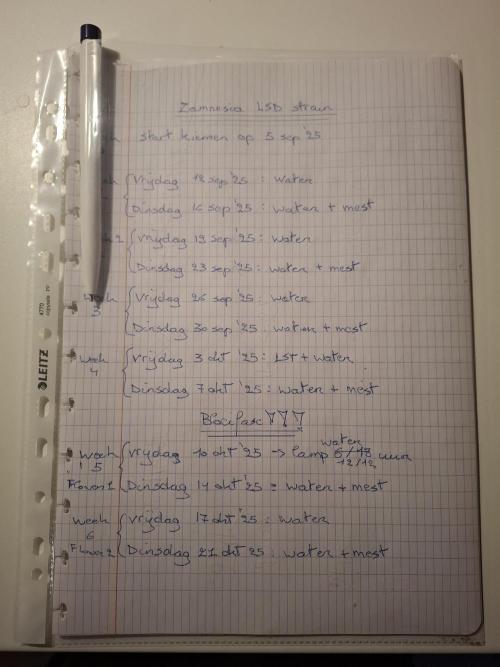 Zamnesia LSD strain
start kiemen op 5 sep '25
Vrijdag 12 sep '25 : water
Dinsdag 16 sep '25 : water + mest
2 Vrijdag 19 sep '25 : water
Dinsdag 23 sep '25 : water + mest
week 3 Vrijdag 26 sep '25 : water
Dinsdag 30 sep '25 : water + mest
week 4 Vrijdag 3 okt '25 : LST + water
Dinsdag 7 okt '25 : water + mest
water
week 5 Vrijdag 10 okt '25 -> lamp 6/18 uur
12/12
Flower 1 Dinsdag 14 okt '25 = water + mest
week 6 Vrijdag 17 okt '25 : water
Flower 2 Dinsdag 21 okt '25 : water + mest
LEITZ
4770